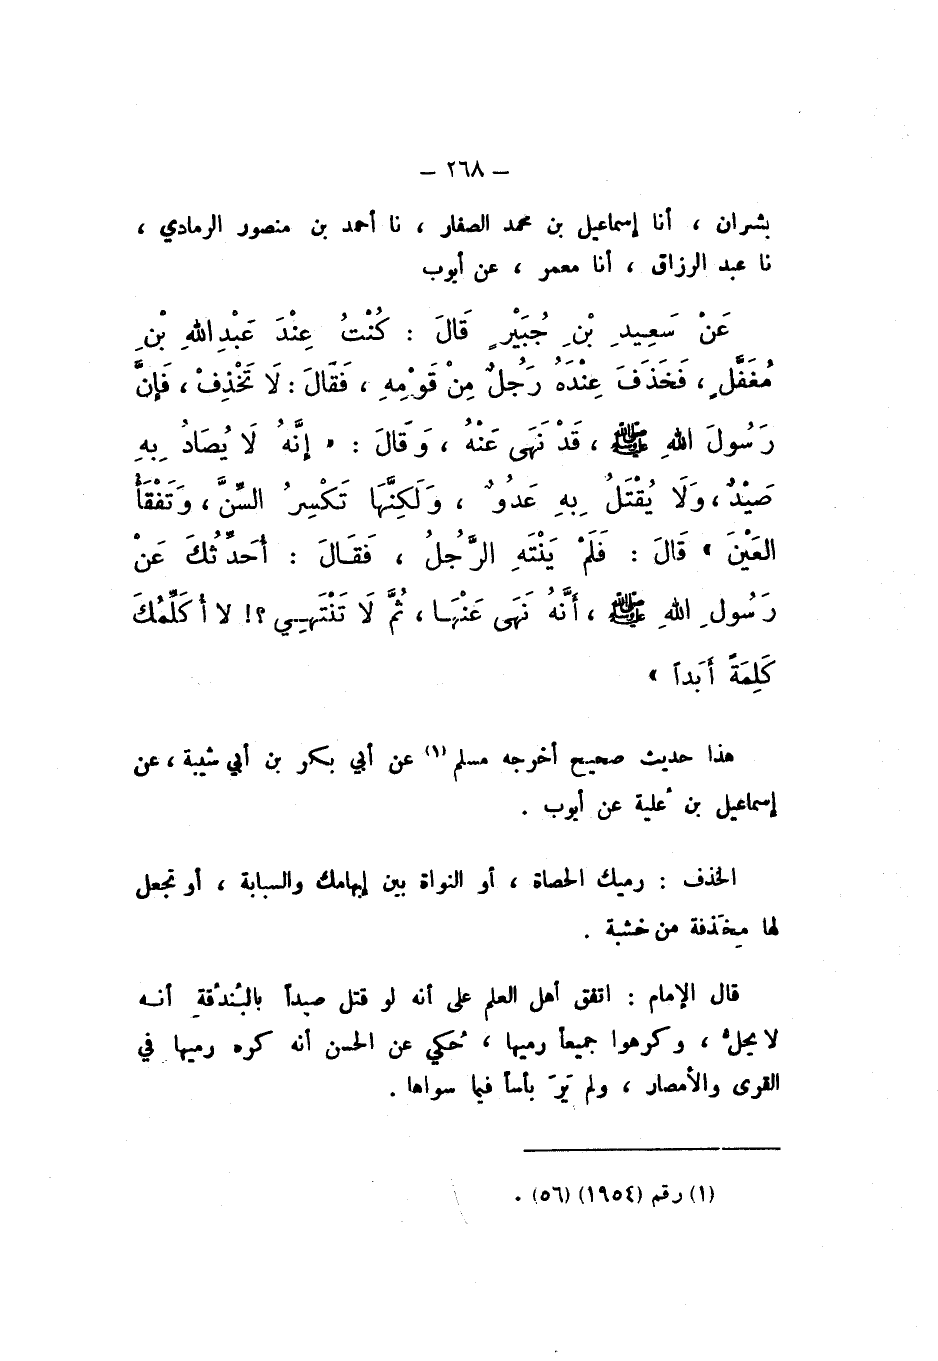 – ٢٦٨ –
بشران ، أنا إسماعيل بن محمد الصفار ، نا أحمد بن منصور الرمادي ،
نا عبد الرزاق ، أنا معمر ، عن أيوب
عَنْ سَعِيدِ بْنِ جُبَيْرٍ قَالَ : كُنْتُ عِنْدَ عَبْدِ اللهِ بْنِ
مُغَفَّلٍ ، فَخَذَفَ عِنْدَهُ رَجُلٌ مِنْ قَوْمِهِ ، فَقَالَ : لَا تَخْذِفْ ، فَإِنَّ
رَسُولَ اللهِ ﷺ ، قَدْ نَهَى عَنْهُ ، وَقَالَ : « إِنَّهُ لَا يُصَادُ بِهِ
صَيْدٌ ، وَلَا يُقْتَلُ بِهِ عَدُوٌّ ، وَلَكِنَّهَا تَكْسِرُ السِّنَّ ، وَتَفْقَأُ
العَيْنَ » قَالَ : فَلَمْ يَنْتَهِ الرَّجُلُ ، فَقَالَ : أُحَدِّثُكَ عَنْ
رَسُولِ اللهِ ﷺ ، أَنَّهُ نَهَى عَنْهَا ، ثُمَّ لَا تَنْتَهِي ؟! لا أُكَلِّمُكَ
كَلِمَةً أَبَداً »
هذا حديث صحيح أخرجه مسلم (١) عن أبي بكر بن أبي شيبة ، عن
إسماعيل بن عُلية عن أيوب .
الخذف : رميك الحصاة ، أو النواة بين إبهامك والسبابة ، أو تجعل
لها مِخذَفة من خشبة .
قال الإمام : اتفق أهل العلم على أنه لو قتل صيداً بالبُندُقةِ أنه
لا يحلُّ ، وكرهوا جميعاً رميها ، حُكي عن الحسن أنه كره رميها في
القرى والأمصار ، ولم يَرَ بأساً فيما سواها .
(١) رقم (١٩٥٤) (٥٦) .